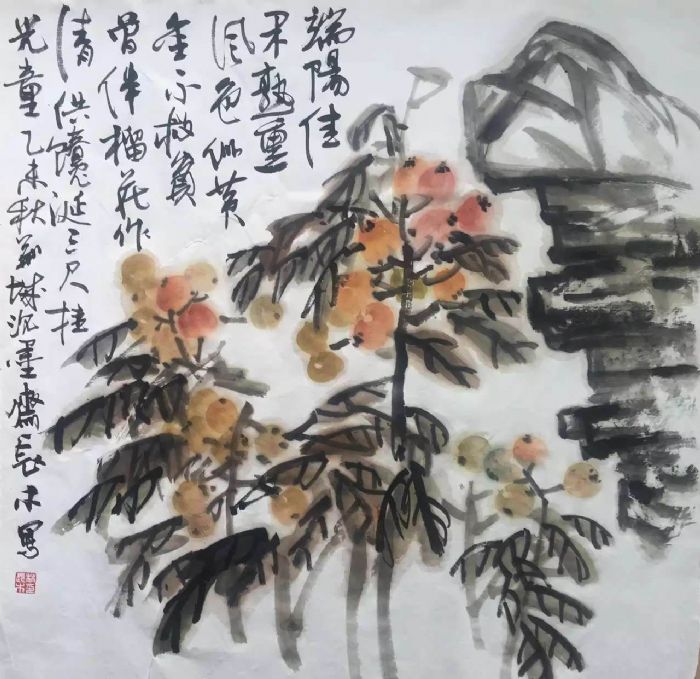 端陽佳
果熟熏
风色似黄
金不救貧
曾伴榴花作
清供饞涎三尺挂
兒童乙未秋城沉墨齋長木寫